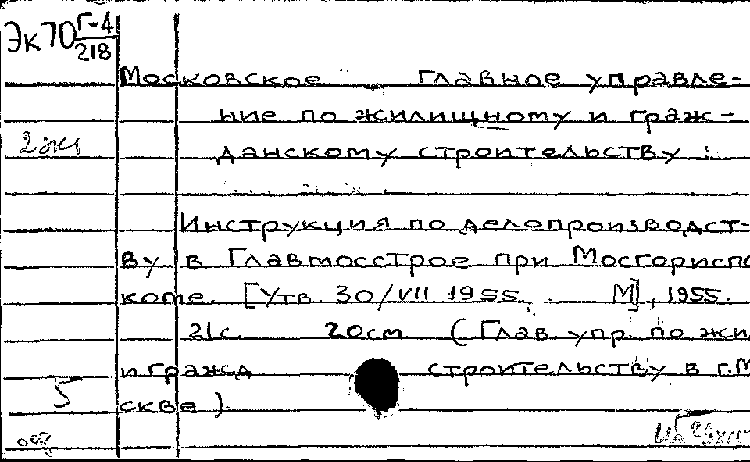 Эк70 Г-4
218
Московское Главное управле-
ние по жилищному и граж-
2 экз
данскому строительству :
Инструкция по делопроизводст-
ву в Главмосстрое при Мосгориспо
коме. [Утв. 30/VII 1955, М], 1955.
21с. 20см (Глав упр по жи
и гражд строительству в г.М
5
скве).